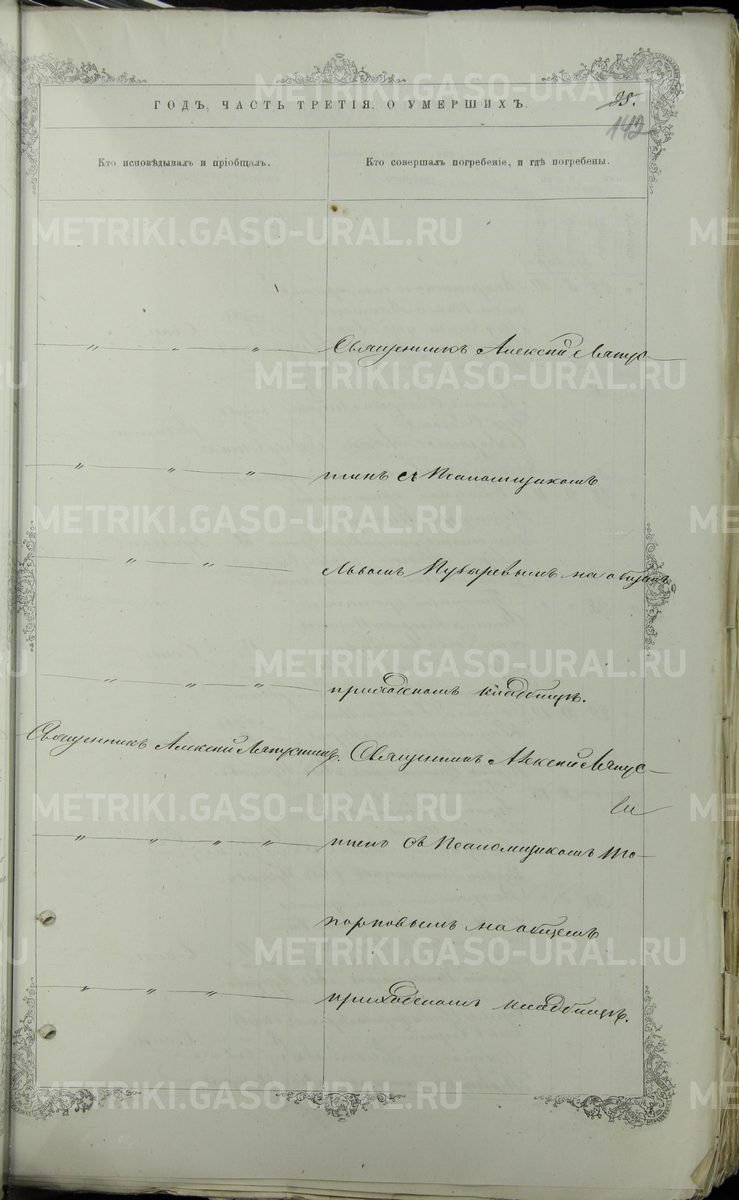 ГОДЪ, ЧАСТЬ ТРЕТІЯ, О УМЕРШИХЪ.
142
Кто исповѣдывалъ и пріобщалъ.
Кто совершалъ погребеніе, и гдѣ погребены.
METRIKI.GASO-URAL.RU
Священникъ Алексѣй Ляпус-
тинъ съ Псаломщикомъ
Львомъ на общемъ
приходскомъ кладбищѣ.
Священникъ Алексѣй Ляпустинъ.
Священникъ Алексѣй Ляпус-
тинъ съ Псаломщикомъ То-
порковымъ на общемъ
приходскомъ кладбищѣ.